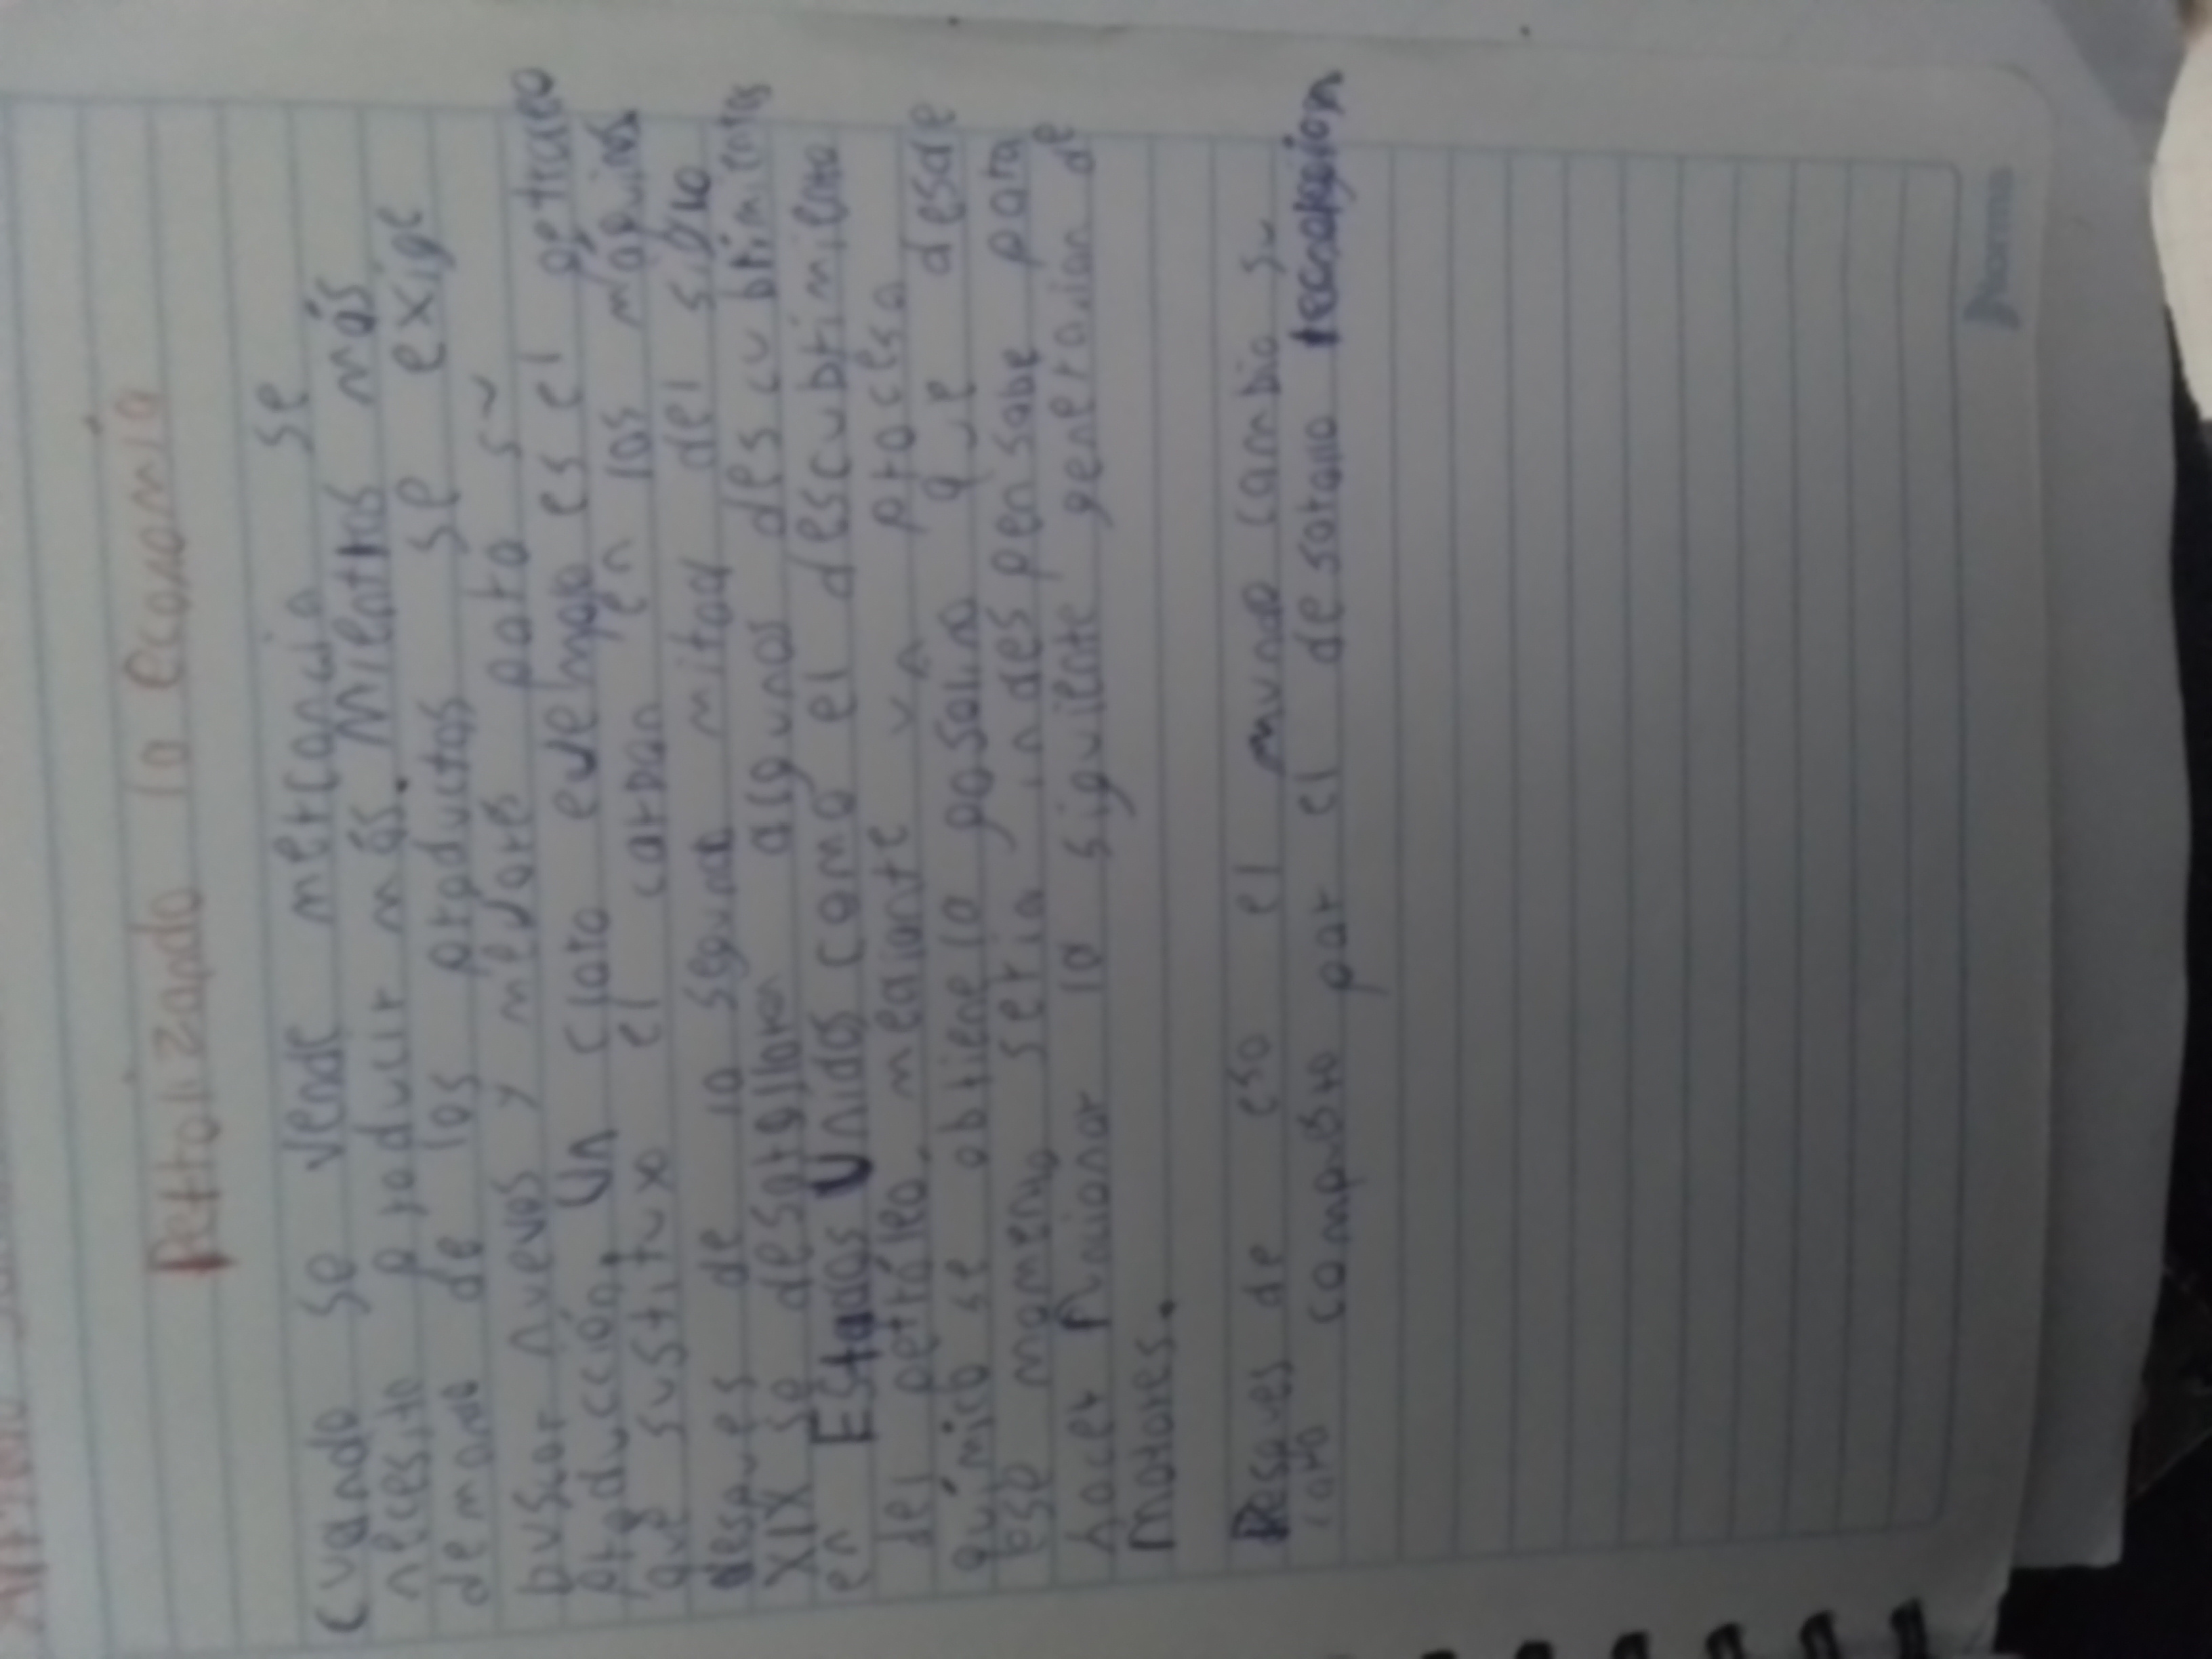 Petrolizando la economía
Cuando se vende mercancia se
necesita producir más. Mientras más
demanda de los productos se exige
buscar nuevos y mejores para su
producción, Un claro ejemplo es el petroleo
que sustituyo el carbon en las máquinas
despues de la segunda mitad del siglo
XIX se desarrollaron algunos descubrimientos
en Estados Unidos como el descubrimiento
del petróleo, mediante un proceso
químico se obtiene la gasolina que desde
ese momento seria indespensable para
hacer funcionar la siguiente generacion de
motores.
Despues de eso el mundo cambio su
por el desarollo
Norma